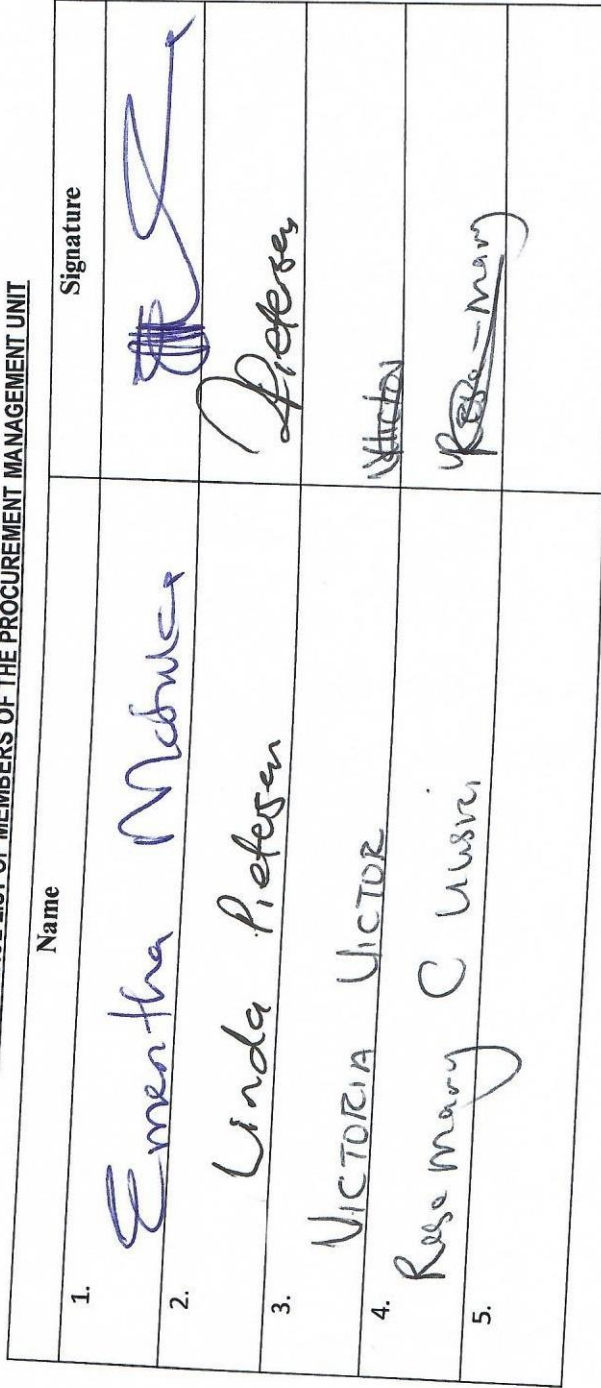 LIST OF MEMBERS OF THE PROCUREMENT MANAGEMENT UNIT
Name Signature
1. Ementha
2. Linda Pietersen Pietersen
3. VICTORIA VICTOR Victor
4. Rosemary C Rosa-Mary
5.